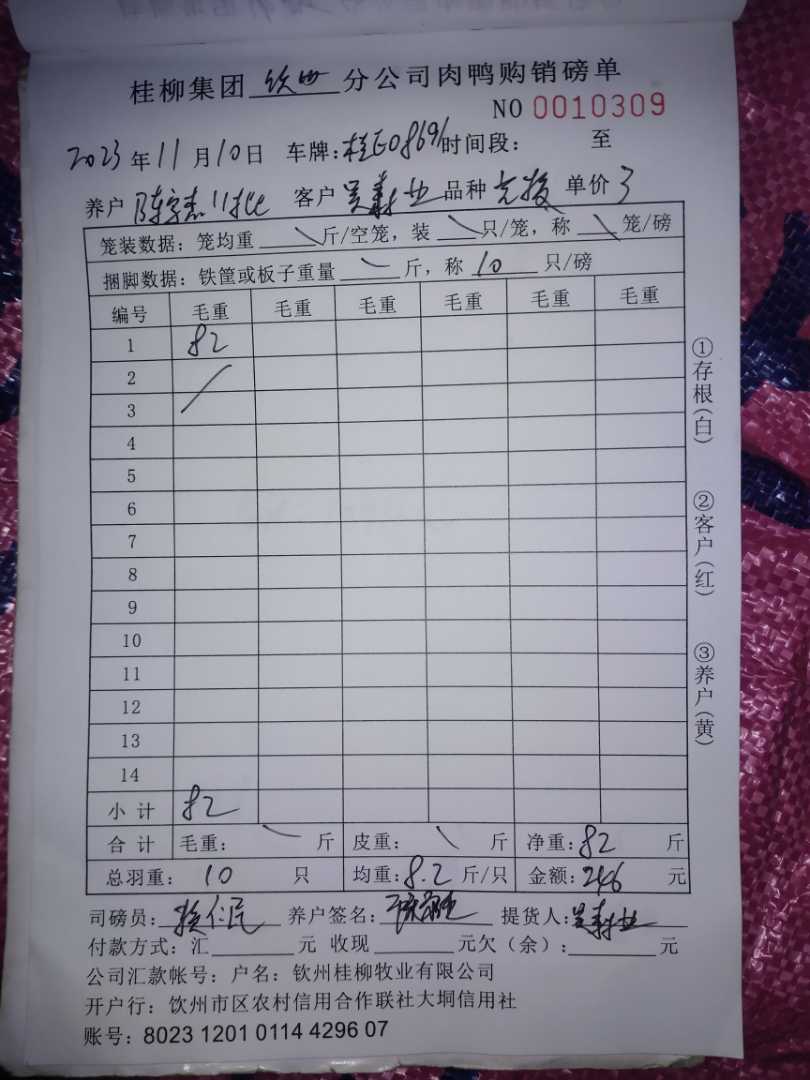 桂柳集团 钦州 分公司肉鸭购销磅单
NO 0010309
2023 年 11 月 10 日 车牌: 桂E08691 时间段: 至
养户 陈 11批 客户 吴寿业 品种 单价 3
笼装数据: 笼均重 斤/空笼, 装 只/笼, 称 笼/磅
捆脚数据: 铁筐或板子重量 斤, 称 10 只/磅
编号 毛重 毛重 毛重 毛重 毛重 毛重
1 82
2
3
4
5
6
7
8
9
10
11
12
13
14
小 计 82
合 计 毛重: 斤 皮重: 斤 净重: 82 斤
总羽重: 10 只 均重: 8.2 斤/只 金额: 246 元
司磅员: 仁民 养户签名: 提货人: 吴寿业
付款方式: 汇 元 收现 元欠(余): 元
公司汇款帐号: 户名: 钦州桂柳牧业有限公司
开户行: 饮州市区农村信用合作联社大垌信用社
账号: 8023 1201 0114 4296 07
①存根(白)
②客户(红)
③养户(黄)